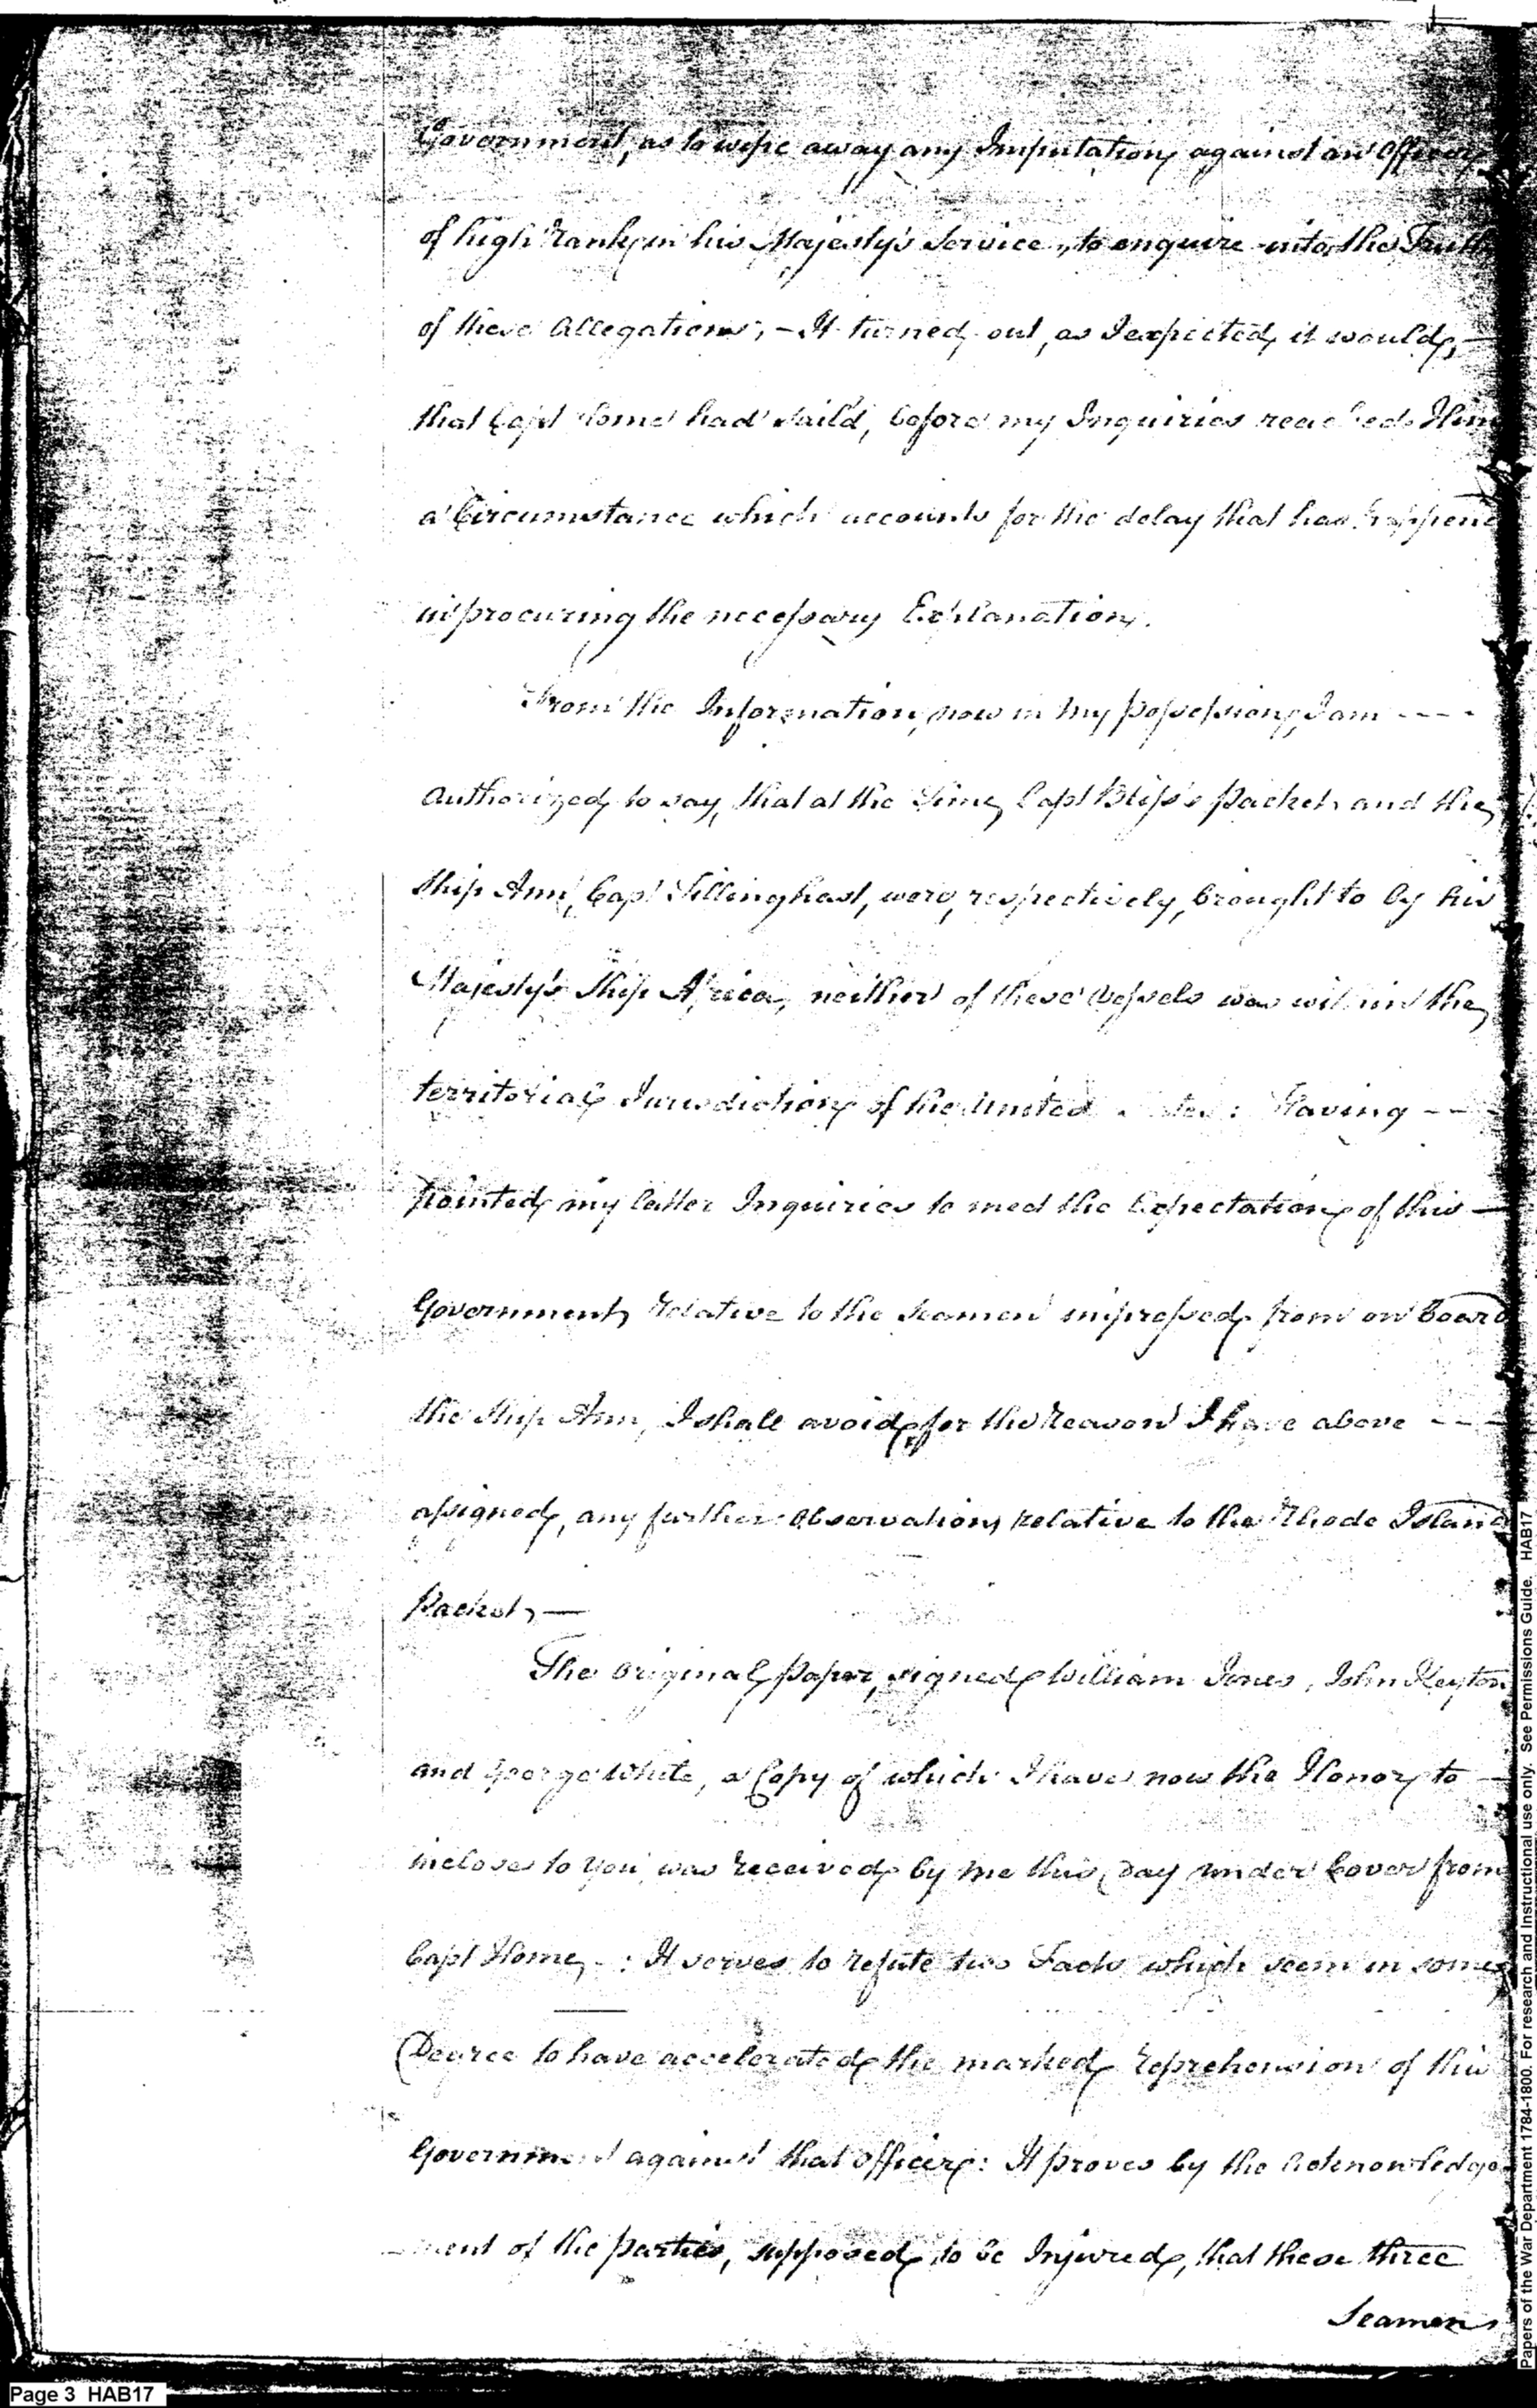 Government, as to wipe away any Imputation against an Officer
of high Rank, in his Majesty's Service, to enquire into the Truth
of these Allegations; - It turned out, as I expected it would, -
that Capt Home had Sail'd, before my Inquiries reached Him
a Circumstance which accounts for the delay that has happend
in procuring the necessary Explanation.
From the Information, now in my possession, I am - - - -
Authorized to say, that at the Time, Capt Bliss's packet, and the
Ship Ann, Capt Tillinghast, were, respectively, brought to by his
Majesty's Ship Africa, neither of these Vessels was within the
territorial Jurisdiction of the United States: Having - - -
pointed my latter Inquiries to meet the Expectation of this -
Government, relative to the Seamen impressed from on board
the Ship Ann, I shall avoid, for the reason I have above - - -
assigned, any further observations relative to the Rhode Island
Packet, —
The original paper, signed William Jones, John Keyton
and George White, a Copy of which I have now the Honor to -
inclose to you was received by me this Day under Cover from
Capt Home, - : It serves to refute two Facts which seem in some
Degree to have accelerated the marked reprehension of this
Government against that officer: It proves by the Acknowledge-
-ment of the parties, supposed to be Injured, that these three
Seamen
Papers of the War Department 1784-1800. For research and Instructional use only. See Permissions Guide. HAB17
Page 3 HAB17